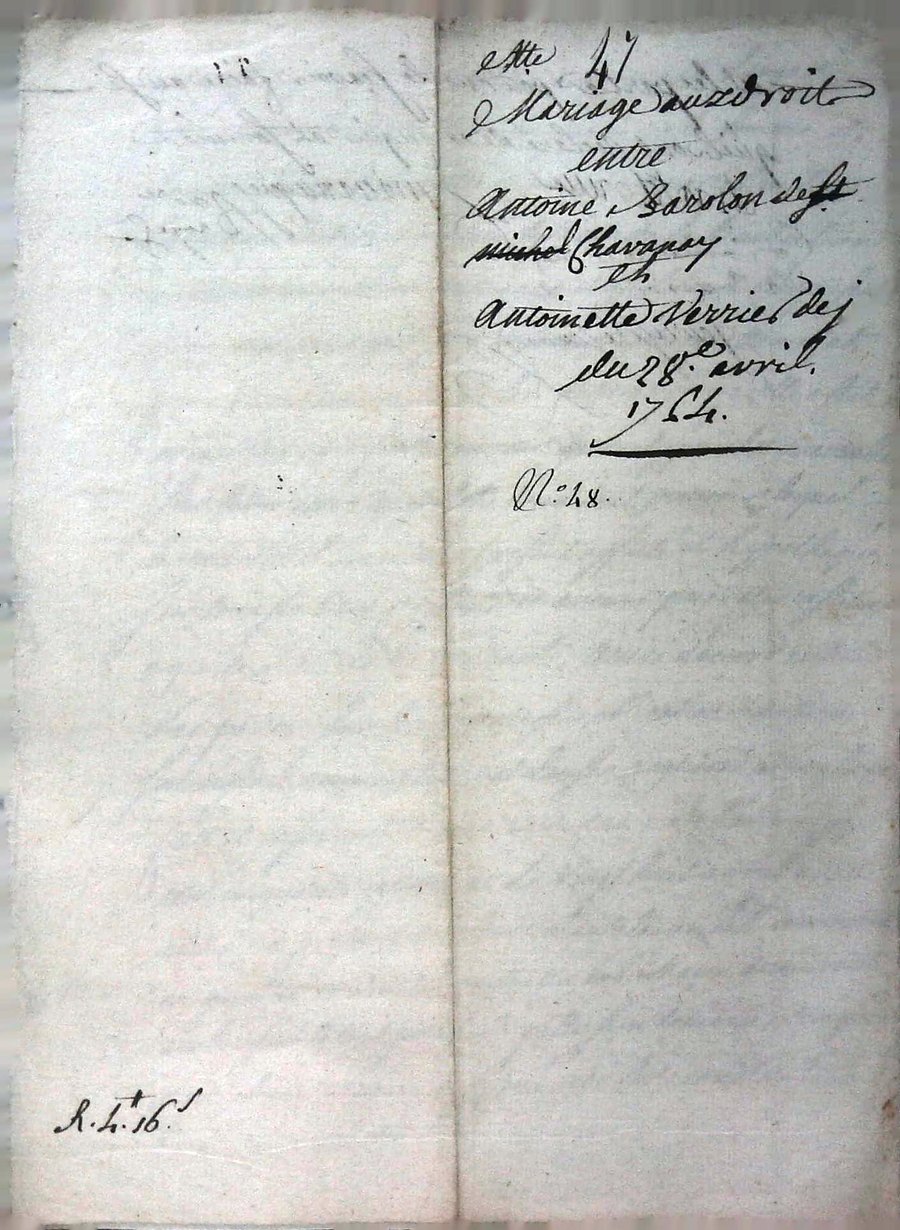 Mariage aux droits
entre
Antoine Barolon de St
michel Chavanay
et
Antoinette Verrier dej
du 28e. avril
1764.
No. 48.
R. 4tt 16s